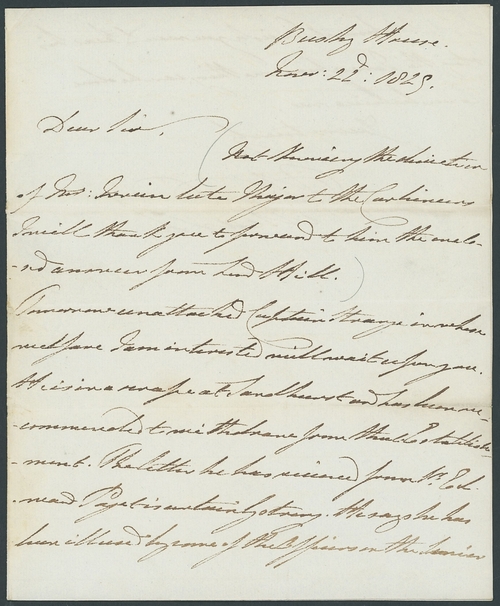 Bushy House.
Novr: 22d: 1829.
Dear Sir,
Not knowing the direction
of Mr: Irwin late Major to the Carbineers
I will thank you to forward to him the enclo-
-sed answer from Lord Hill.
Tomorrow unattached Captain Strange in whose
welfare I am interested will wait upon you.
He is in a scrape at Sandhurst and has been re-
-commended to withdraw from that Establish-
-ment. The letter he has received from Sr. Ed-
-ward Paget is certainly strong. He says he has
been ill used by some of the Officers in the Senior